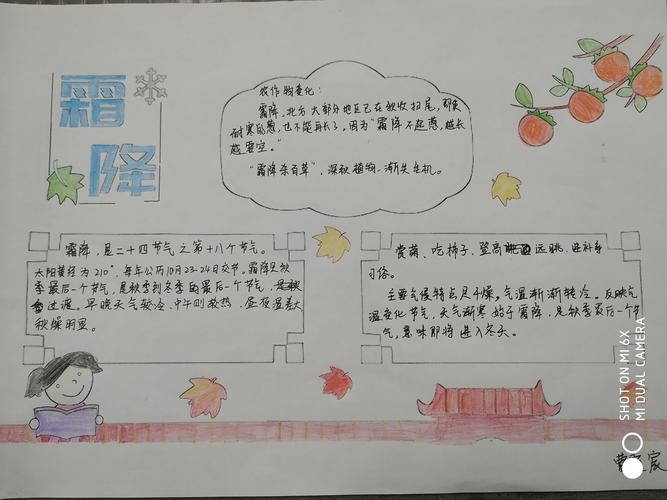 霜降
农作物变化:
霜降,北方大部分地区已在秋收扫尾,即使
耐寒的葱,也不能再长了,因为"霜降不起葱,越长
越要空。"
"霜降杀百草",深秋植物一渐失生机。
霜降,是二十四节气之第十八个节气。
太阳黄经为210°,每年公历10月23-24日交节,霜降是秋
季最后一个节气,是秋季到冬季的最后一个节气,
过渡。早晚天气较冷、中午则较热,昼夜温差大
秋燥明显。
赏菊、吃柿子、登高远眺、进补等
习俗。
主要气候特点是干燥。气温渐渐转冷。反映气
温变化节气,天气渐寒始于霜降,是秋季最后一个节
气,意味即将进入冬天。
SHOT ON MI 6X
MI DUAL CAMERA
家